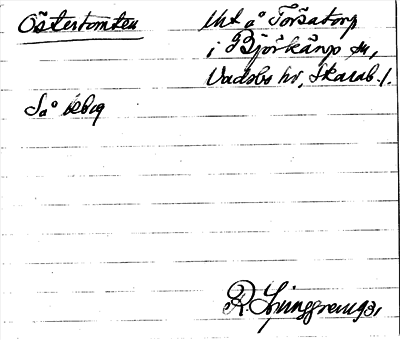 Östertomten
Uht å Torsatorp
i Björkängs sn,
Vadsbo hd, Skarab. l.
Så 1929
R. Ljunggren 1931